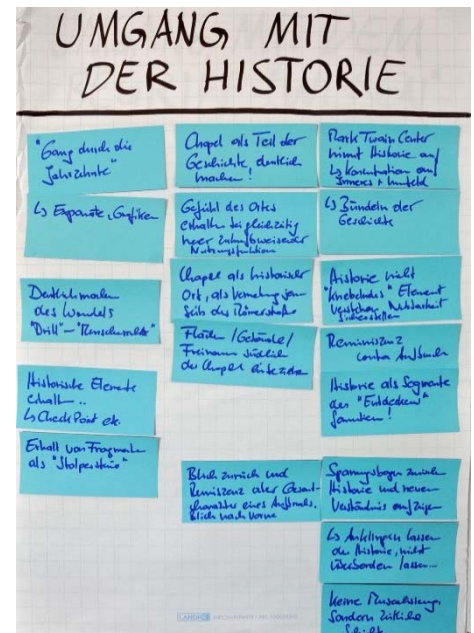 UMGANG MIT
DER HISTORIE
"Gang durch die
Jahrzehnte"
↳ Exponate, Grafiken
Deutlichmachen
des Wandels
"Drill" – "Menschenrechte"
Historische Elemente
erhalten..
↳ Check Point etc.
Erhalt von Fragmenten
als "Stolpersteine"
Chapel als Teil der
Geschichte deutlich
machen!
Gefühl des Ortes
erhalten bei gleichzeitig
neuer zukunftsweisender
Nutzungsfunktion
Chapel als historischer
Ort, als Vernetzung jen
seits der Römerstraße
Flächen / Gebäude /
Freiraum südlich
der Chapel einbeziehen
Blick zurück und
Reminiszenz aber Gesamt-
charakter eines Aufbruchs,
Blick nach vorne
Mark Twain Center
nimmt Historie auf
↳ Konzentration auf
Inneres + Umfeld
↳ Bündeln der
Geschichte
Historie nicht
"knebelndes" Element
verstehen, Nutzbarkeit
sicherstellen
Reminiszenz
contra Aufbruch
Historie als Segmente
des "Entdecken"
Spannungsbogen zwischen
Historie und neuem
Verständnis aufzeigen
↳ Anklingen lassen
der Historie, nicht
überborden lassen...
keine Musealisierung,
sondern